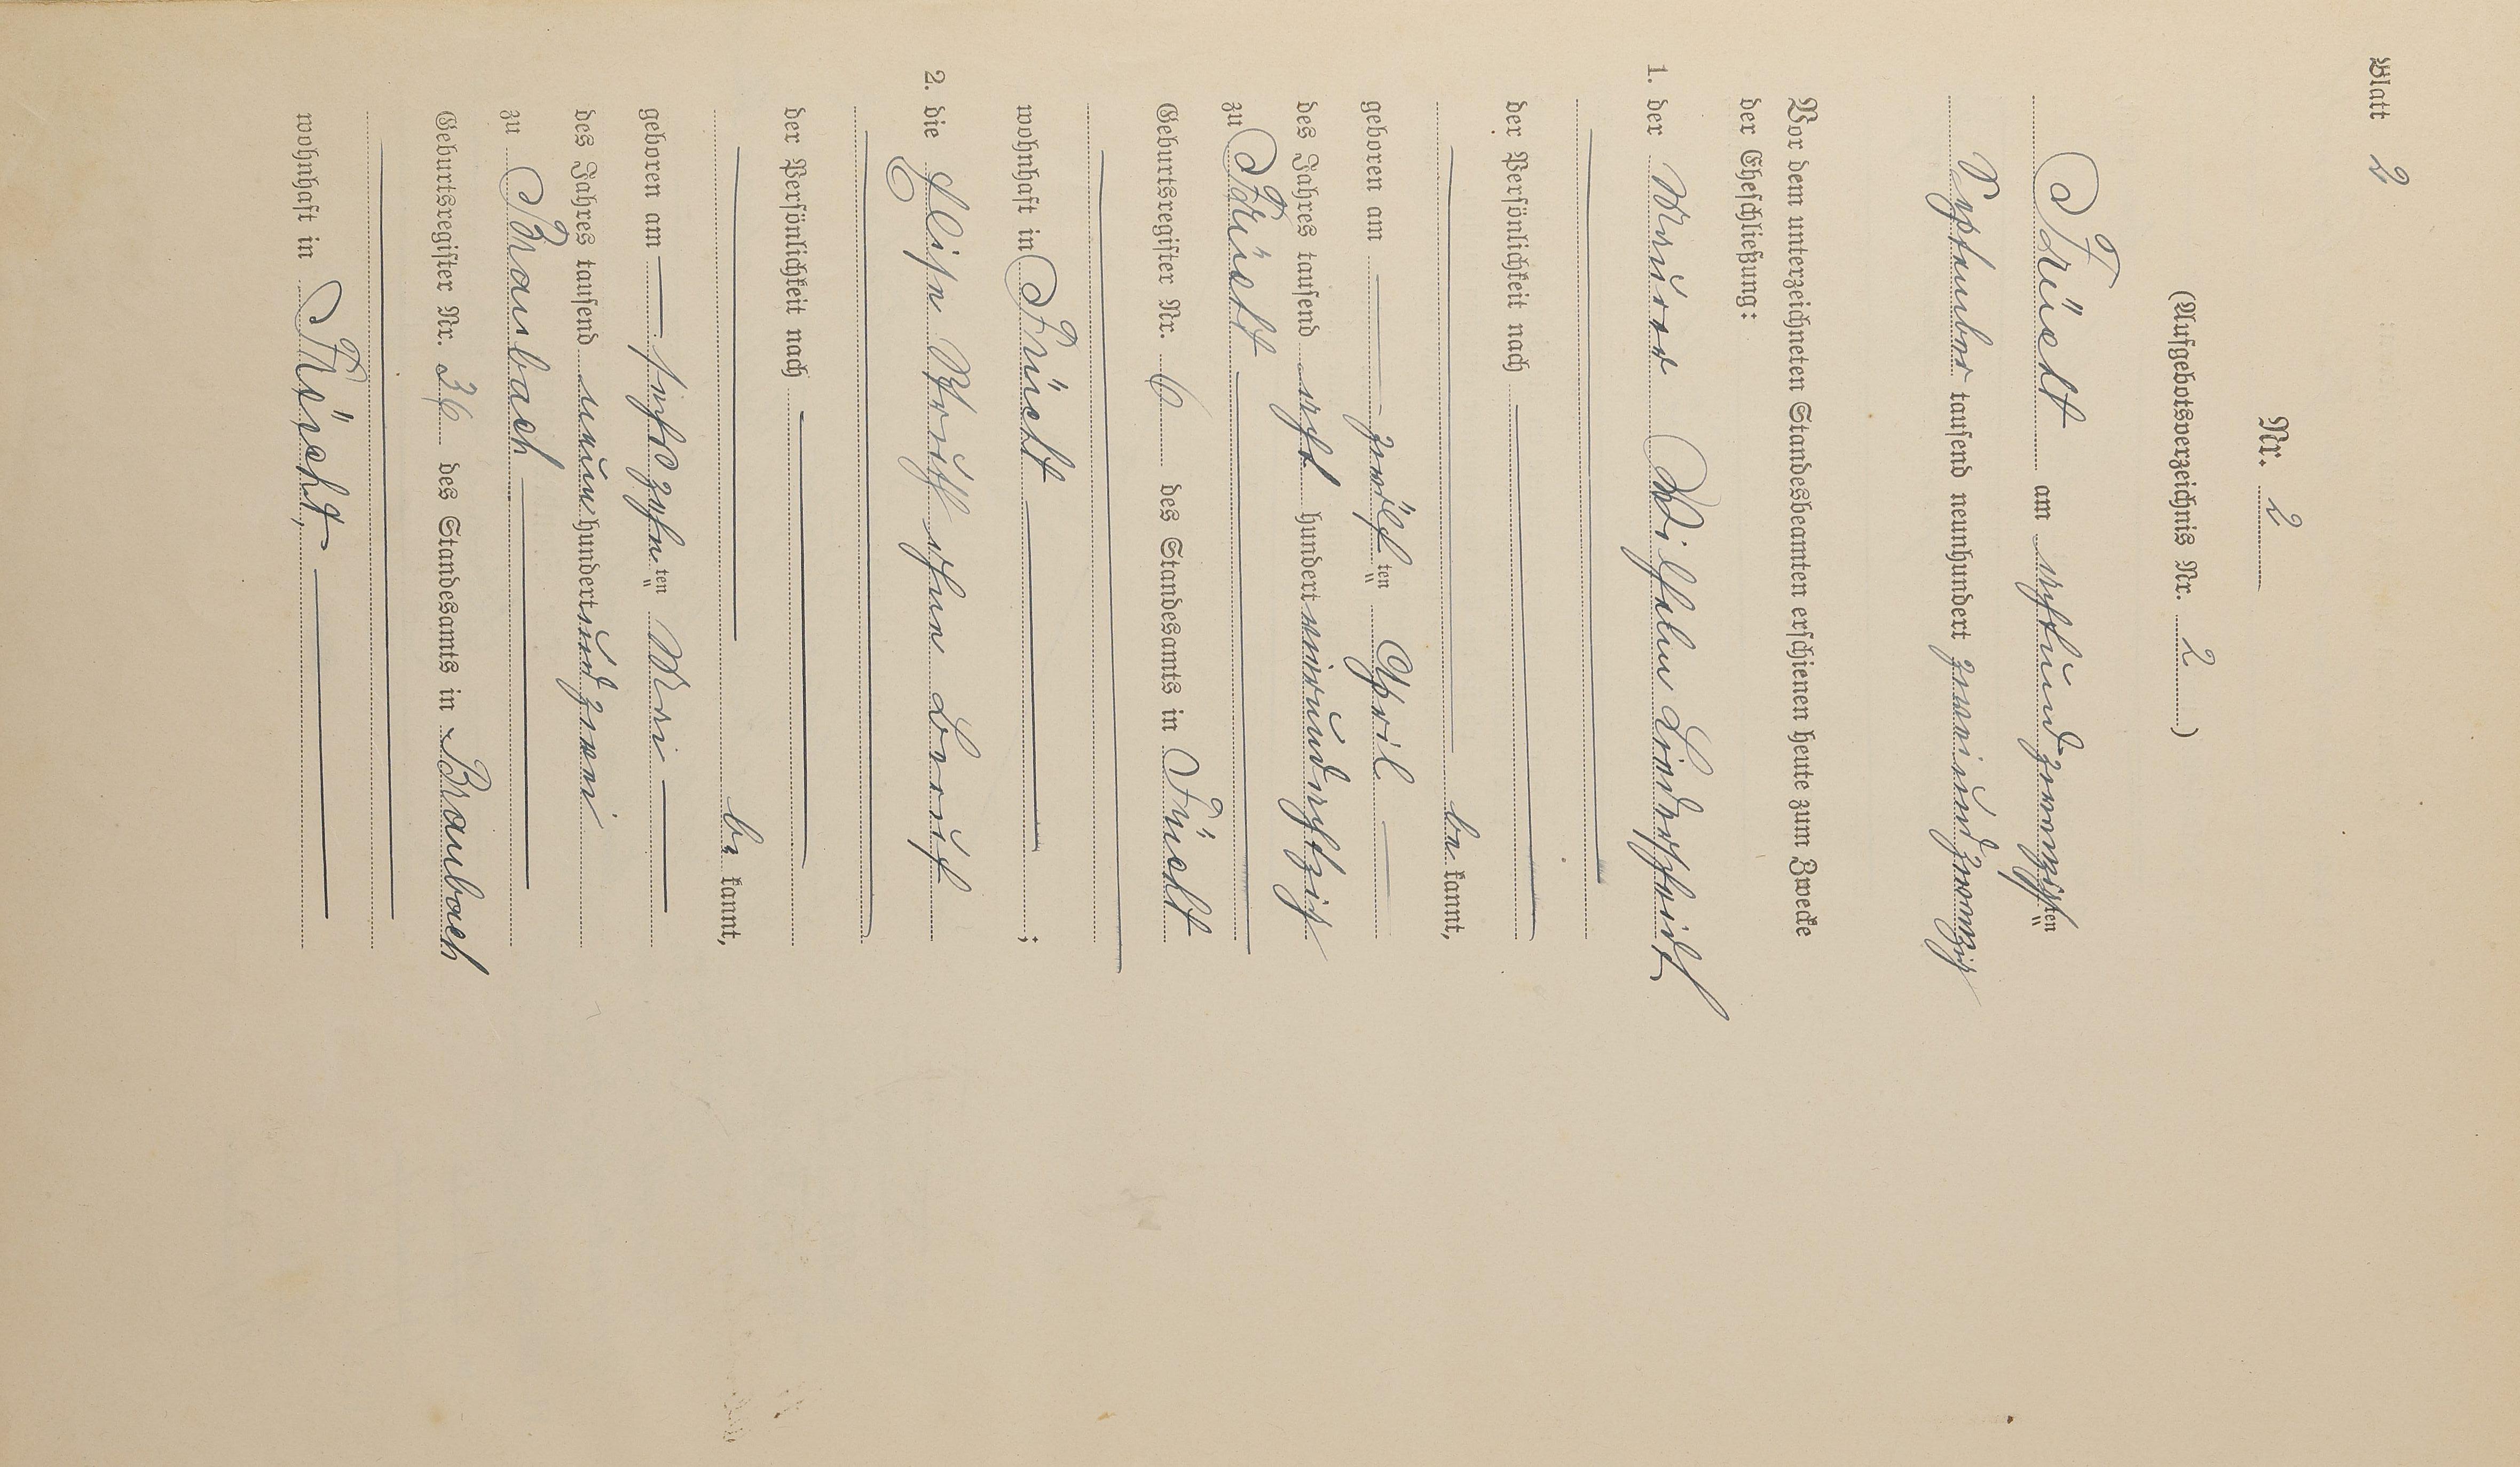 Blatt 2
Nr. 2
(Aufgebotsverzeichnis Nr. 2)
Frücht am achtundzwanzigsten
September tausend neunhundert zweiundzwanzig
Vor dem unterzeichneten Standesbeamten erschienen heute zum Zwecke
der Eheschließung:
1. der Maurer Wilhelm
der Persönlichkeit nach
be kannt,
geboren am zwölften April
des Jahres tausend acht hundert vierundachtzig
zu Frücht
Geburtsregister Nr. 6 des Standesamts in Frücht
wohnhaft in Frücht ;
2. die Elise ohne Beruf
der Persönlichkeit nach
be kannt,
geboren am sechszehnten Mai
des Jahres tausend neun hundert und zwei
zu Braubach
Geburtsregister Nr. 36 des Standesamts in Braubach
wohnhaft in Frücht,